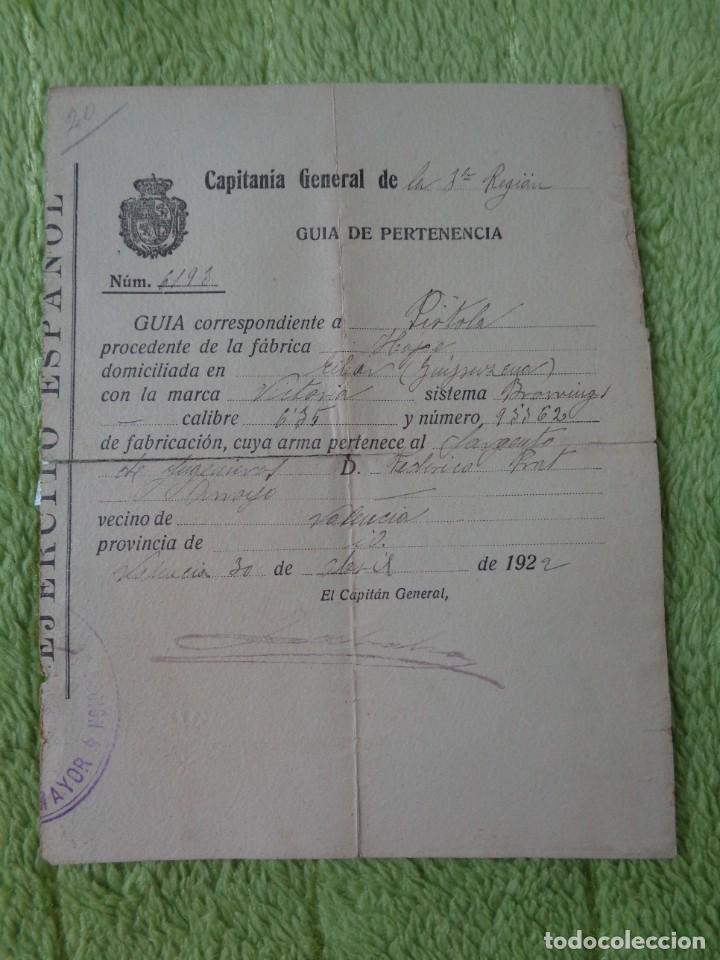 20
Capitanía General de la 3ra Región
GUIA DE PERTENENCIA
Núm. 6193
GUIA correspondiente a Pistola
procedente de la fábrica
domiciliada en Eibar (Guipuzcoa)
con la marca Victoria sistema Browning
— calibre 6'35 y número 93562
de fabricación, cuya arma pertenece al Sargento
de Ingenieros D. Federico Prat
Arroyo
vecino de Valencia
provincia de id.
Valencia 30 de Abril de 1922
El Capitán General,
EJERCITO ESPAÑOL
MAYOR
todocoleccion.net